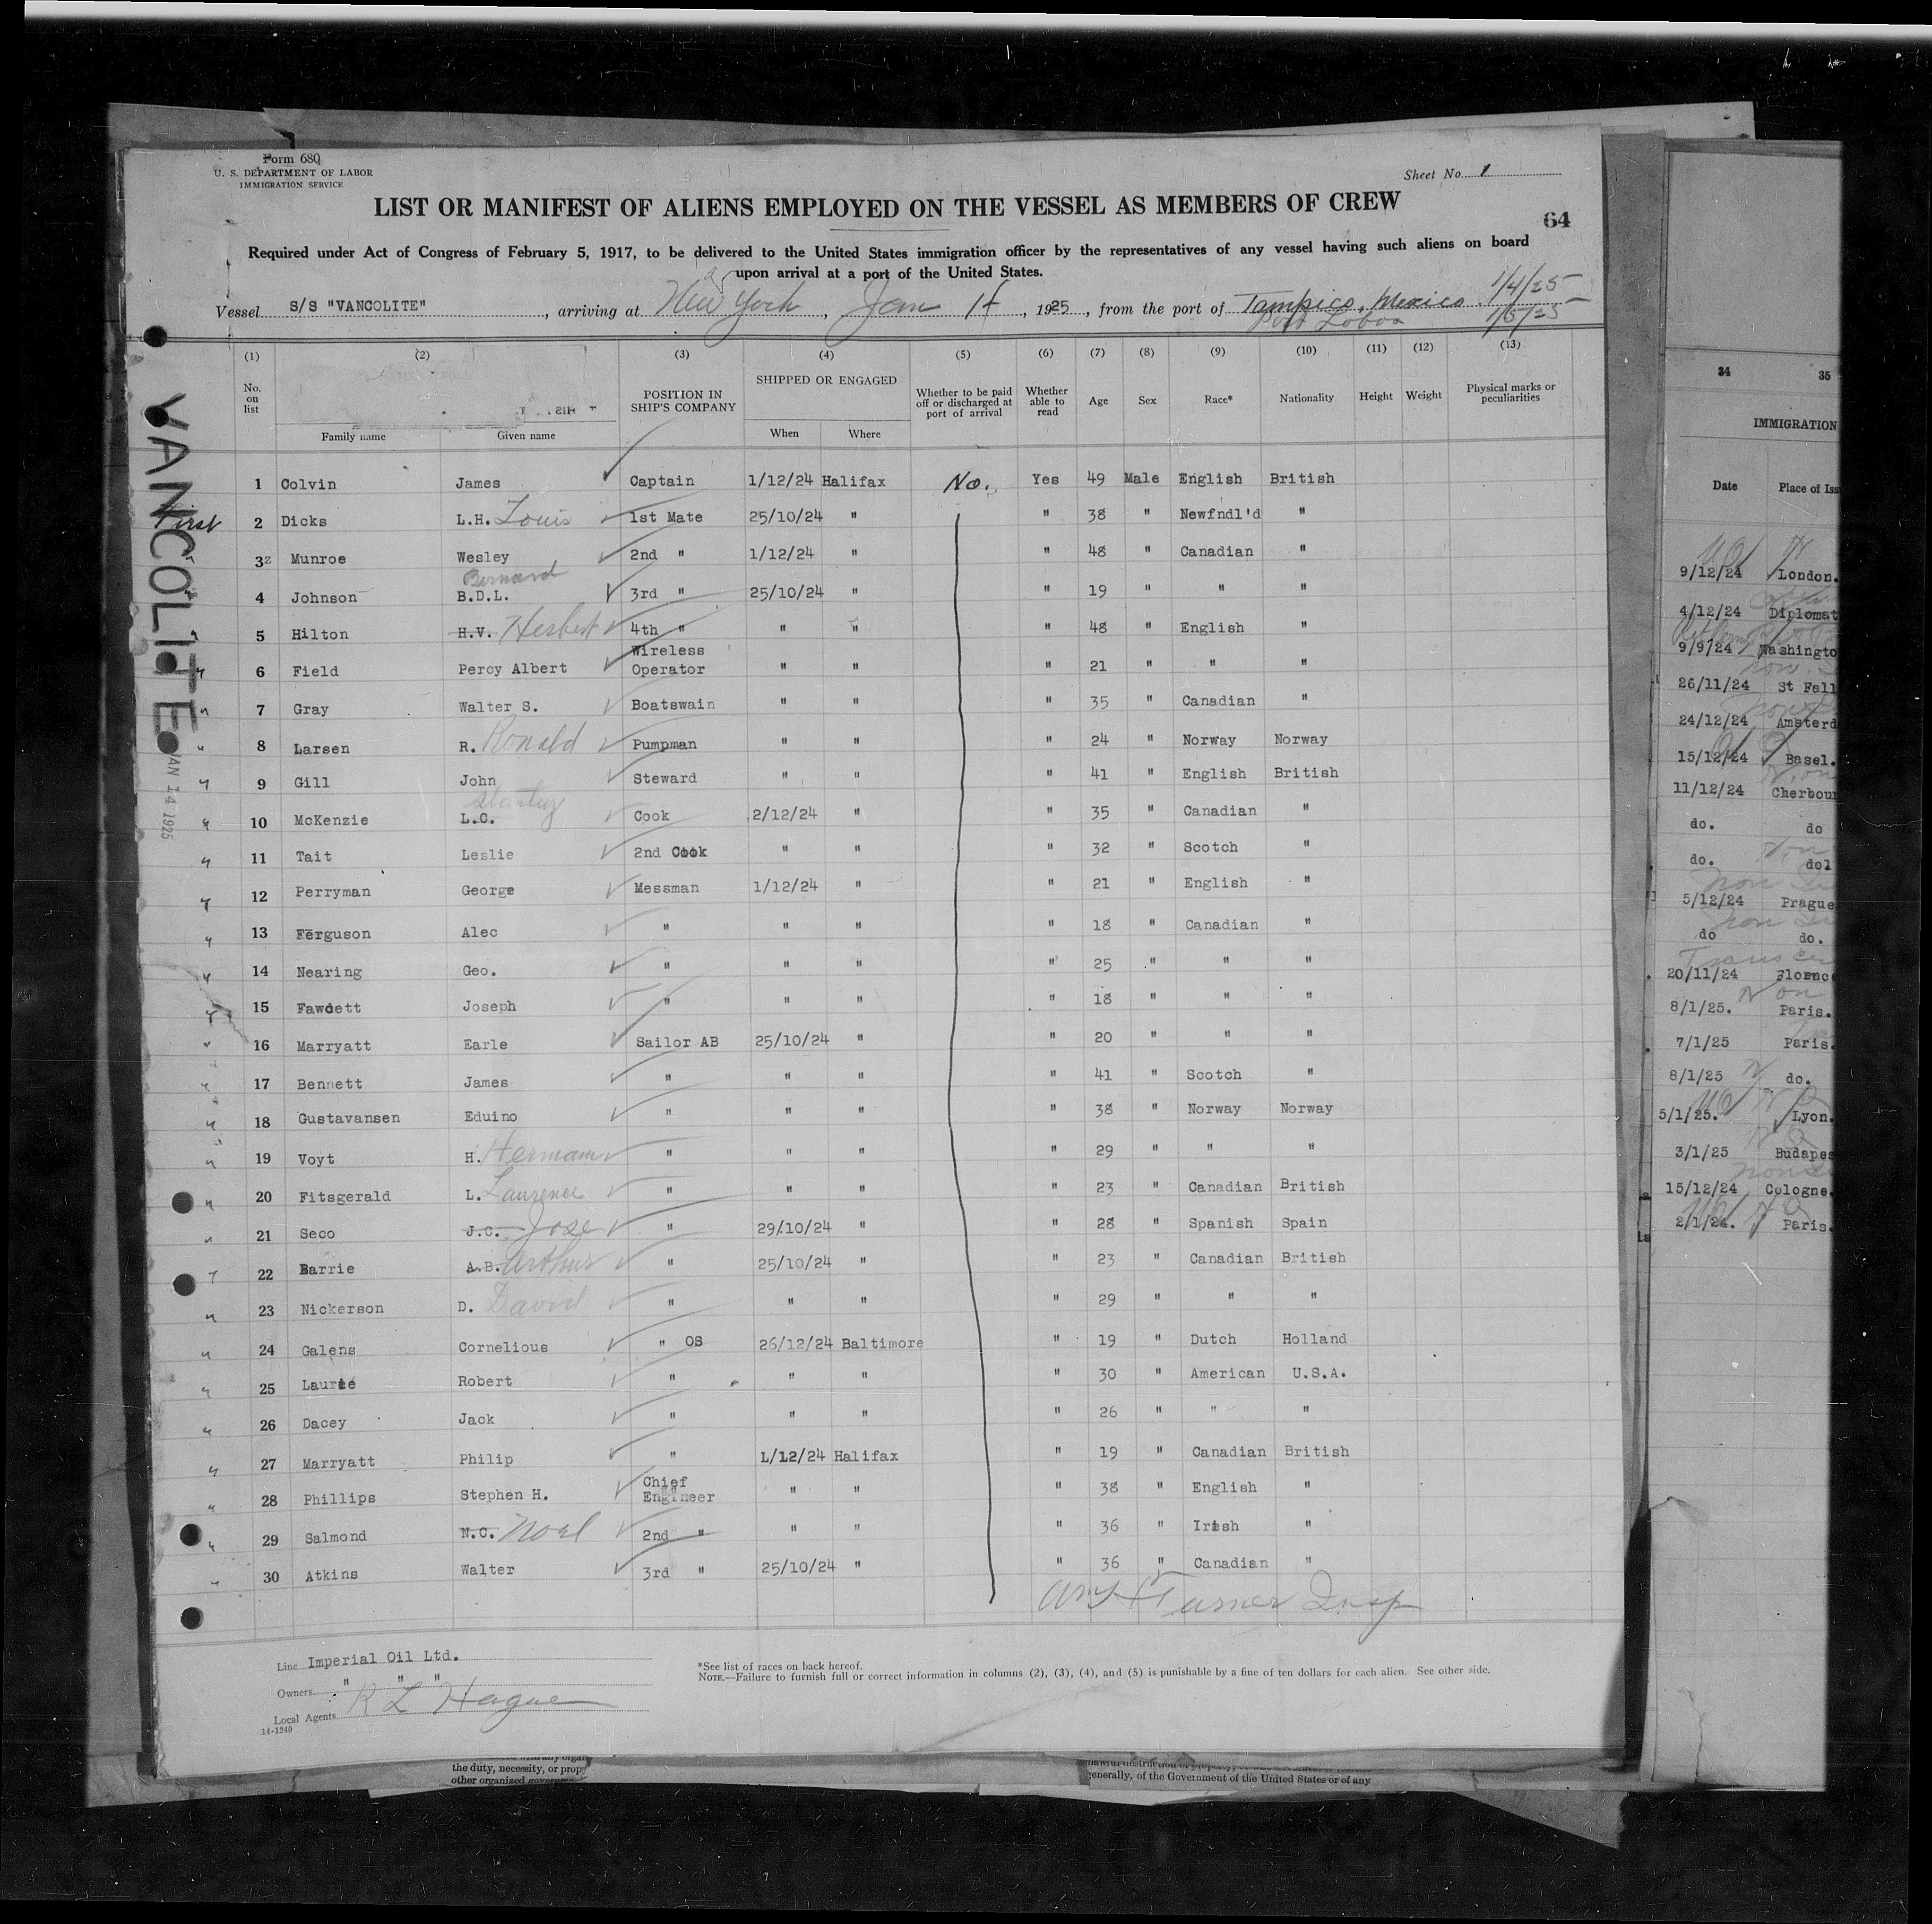 Form 680
U. S. DEPARTMENT OF LABOR
IMMIGRATION SERVICE
Sheet No. 1
LIST OR MANIFEST OF ALIENS EMPLOYED ON THE VESSEL AS MEMBERS OF CREW
64
Required under Act of Congress of February 5, 1917, to be delivered to the United States immigration officer by the representatives of any vessel having such aliens on board
upon arrival at a port of the United States.
Vessel S/S "VANCOLITE", arriving at New York, Jan 14, 1925, from the port of Tampico, Mexico 1/4/25
Port Lobos 1/5/25
(1) (2) (3) (4) (5) (6) (7) (8) (9) (10) (11) (12) (13)
No. on list Family name Given name POSITION IN SHIP'S COMPANY SHIPPED OR ENGAGED When Where Whether to be paid off or discharged at port of arrival Whether able to read Age Sex Race* Nationality Height Weight Physical marks or peculiarities
1 Colvin James Captain 1/12/24 Halifax No. Yes 49 Male English British
First 2 Dicks L.H. Louis 1st Mate 25/10/24 " " 38 " Newfndl'd "
3 Munroe Wesley 2nd " 1/12/24 " " 48 " Canadian "
4 Johnson B.D.L. Bernard 3rd " 25/10/24 " " 19 " " "
5 Hilton H.V. Herbert 4th " " " " 48 " English "
6 Field Percy Albert Wireless Operator " " " 21 " " "
7 Gray Walter S. Boatswain " " " 35 " Canadian "
8 Larsen R. Ronald Pumpman " " " 24 " Norway Norway
9 Gill John Steward " " " 41 " English British
10 McKenzie L.C. Cook 2/12/24 " " 35 " Canadian "
11 Tait Leslie 2nd Cook " " " 32 " Scotch "
12 Perryman George Messman 1/12/24 " " 21 " English "
13 Ferguson Alec " " " " 18 " Canadian "
14 Nearing Geo. " " " " 25 " " "
15 Fawdett Joseph " " " " 18 " " "
16 Marryatt Earle Sailor AB 25/10/24 " " 20 " " "
17 Bennett James " " " " 41 " Scotch "
18 Gustavansen Eduino " " " " 38 " Norway Norway
19 Voyt H. Hermann " " " " 29 " " "
20 Fitsgerald L. Laurence " " " " 23 " Canadian British
21 Seco J.C. Jose " 29/10/24 " " 28 " Spanish Spain
22 Barrie A.B. Arthur " 25/10/24 " " 23 " Canadian British
23 Nickerson D. David " " " " 29 " " "
24 Galens Cornelious " OS 26/12/24 Baltimore " 19 " Dutch Holland
25 Laurie Robert " " " " 30 " American U.S.A.
26 Dacey Jack " " " " 26 " " "
27 Marryatt Philip " 1/12/24 Halifax " 19 " Canadian British
28 Phillips Stephen H. Chief Engineer " " " 38 " English "
29 Salmond N.C. Noel 2nd " " " " 36 " Irish "
30 Atkins Walter 3rd " 25/10/24 " " 36 " Canadian "
Turner Insp
Line Imperial Oil Ltd.
Owners " " "
Local Agents R L Hague
14-1240
*See list of races on back hereof.
NOTE.—Failure to furnish full or correct information in columns (2), (3), (4), and (5) is punishable by a fine of ten dollars for each alien. See other side.
VANCOLITE
JAN 14 1925
the duty, necessity, or prop
other organized
generally, of the Government of the United States or of any
34 35
IMMIGRATION
Date Place of Iss
9/12/24 London.
4/12/24 Diplomat
9/9/24 Washingto
26/11/24 St Fall
24/12/24 Amsterd
15/12/24 Basel.
11/12/24 Cherbour
do. do
do. do1
5/12/24 Prague
do do.
20/11/24 Florenc
8/1/25. Paris.
7/1/25 Paris.
8/1/25 do.
5/1/25. Lyon.
3/1/25 Budapes
15/12/24 Cologne.
2/1/24. Paris.